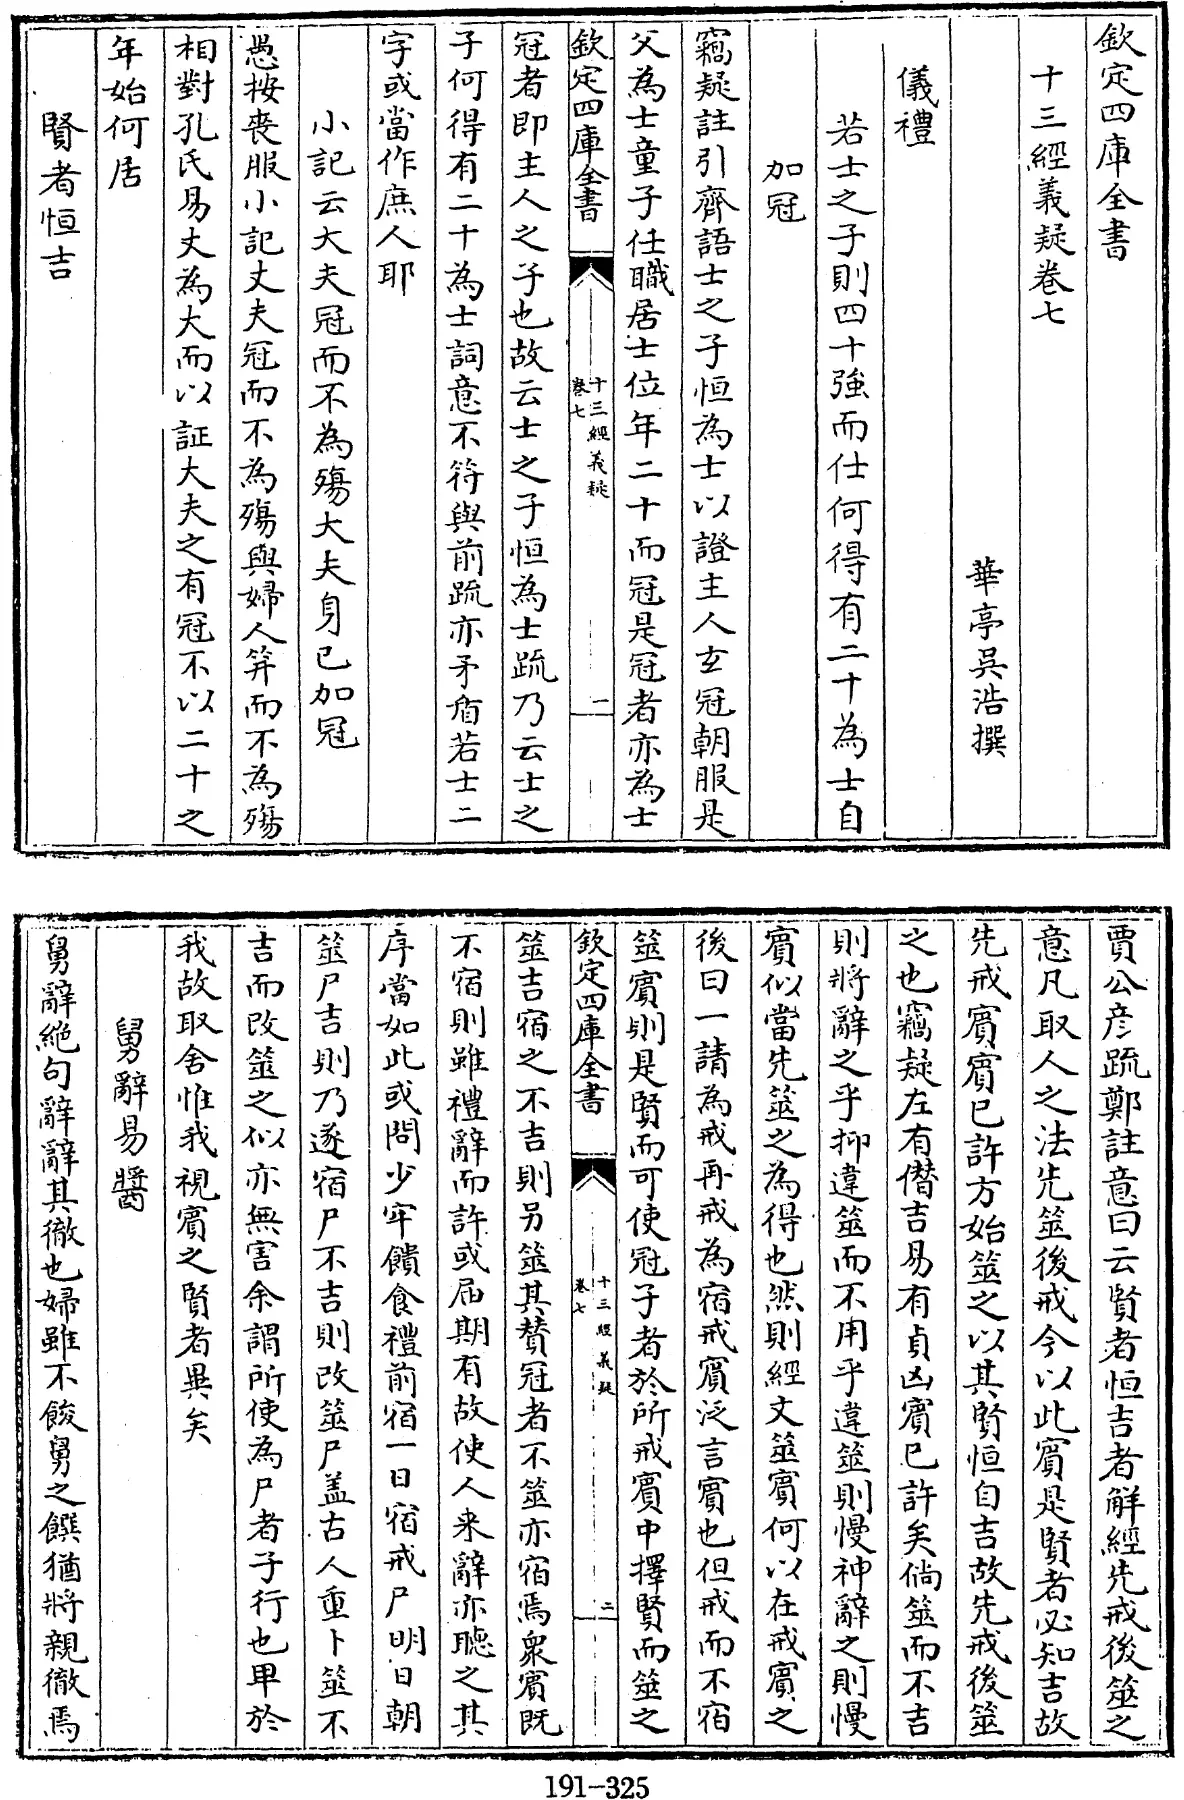 欽定四庫全書
十三經義疑卷七
華亭吳浩撰
儀禮
若士之子則四十強而仕何得有二十為士自
加冠
竊疑註引齊語士之子恒為士以證主人玄冠朝服是
父為士童子任職居士位年二十而冠是冠者亦為士
欽定四庫全書
十三經義疑
卷七
一
冠者即主人之子也故云士之子恒為士疏乃云士之
子何得有二十為士詞意不符與前疏亦矛盾若士二
字或當作庶人耶
小記云大夫冠而不為殤大夫身已加冠
愚按喪服小記丈夫冠而不為殤與婦人笄而不為殤
相對孔氏易丈為大而以証大夫之有冠不以二十之
年始何居
賢者恒吉
賈公彦疏鄭註意曰云賢者恒吉者解經先戒後筮之
意凡取人之法先筮後戒今以此賓是賢者必知吉故
先戒賓賓已許方始筮之以其賢恒自吉故先戒後筮
之也竊疑左有僭吉易有貞凶賓已許矣倘筮而不吉
則將辭之乎抑違筮而不用乎違筮則慢神辭之則慢
賓似當先筮之為得也然則經文筮賓何以在戒賓之
後曰一請為戒再戒為宿戒賓泛言賓也但戒而不宿
筮賓則是賢而可使冠子者於所戒賓中擇賢而筮之
欽定四庫全書
十三經義疑
卷七
二
筮吉宿之不吉則另筮其贊冠者不筮亦宿焉衆賓既
不宿則雖禮辭而許或屆期有故使人来辭亦聽之其
序當如此或問少牢饋食禮前宿一日宿戒尸明日朝
筮尸吉則乃遂宿尸不吉則改筮尸盖古人重卜筮不
吉而改筮之似亦無害余謂所使為尸者子行也卑於
我故取舍惟我視賓之賢者異矣
舅辭易醬
舅辭絶句辭辭其徹也婦雖不餕舅之饌猶將親徹焉
191-325